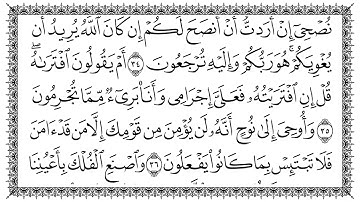 نُصْحِىٓ إِنْ أَرَدتُّ أَنْ أَنصَحَ لَكُمْ إِن كَانَ ٱللَّهُ يُرِيدُ أَن
يُغْوِيَكُمْ ۚ هُوَ رَبُّكُمْ وَإِلَيْهِ تُرْجَعُونَ ﴿٣٤﴾ أَمْ يَقُولُونَ ٱفْتَرَىٰهُ ۖ
قُلْ إِنِ ٱفْتَرَيْتُهُۥ فَعَلَىَّ إِجْرَامِى وَأَنَا۠ بَرِىٓءٌ مِّمَّا تُجْرِمُونَ
﴿٣٥﴾ وَأُوحِىَ إِلَىٰ نُوحٍ أَنَّهُۥ لَن يُؤْمِنَ مِن قَوْمِكَ إِلَّا مَن قَدْ ءَامَنَ
فَلَا تَبْتَئِسْ بِمَا كَانُوا۟ يَفْعَلُونَ ﴿٣٦﴾ وَٱصْنَعِ ٱلْفُلْكَ بِأَعْيُنِنَا